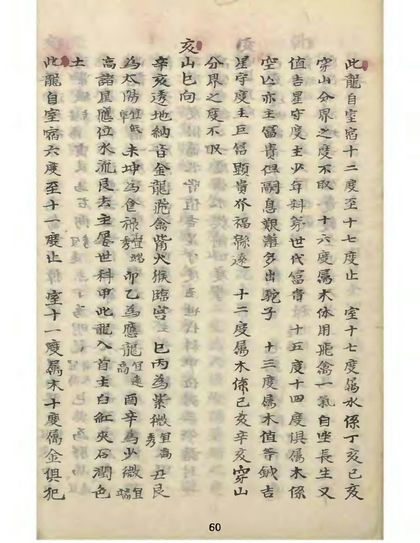 此龍自室宿十二度至十七度止 室十七度属水係丁亥己亥
穿山分界之度不取 十六度属木体用飛禽一氣自坐長生又
值吉星守度主少年科第世代富貴 十五度十四度俱属木係
空亡亦主富貴但嗣息艱難多出駝子 十三度属木值等鉞吉
星守度主巨富顯貴齐福縣遠 十二度属木係己亥辛亥穿山
分界之度不取
亥山巳向
辛亥透地納音金龍飛禽觜火猴臨宫 巳丙為紫微宜高秀 丑艮
為太陽宜低 未坤為食禄宜端秀 卯乙為應龍宜遠高 酉辛為少微宜端
高諸星應位水流艮去主屡世科甲此龍入首主白紅夾石潤色
土
此龍自室宿六度至十一度止 室十一度属木十度属金俱犯
60